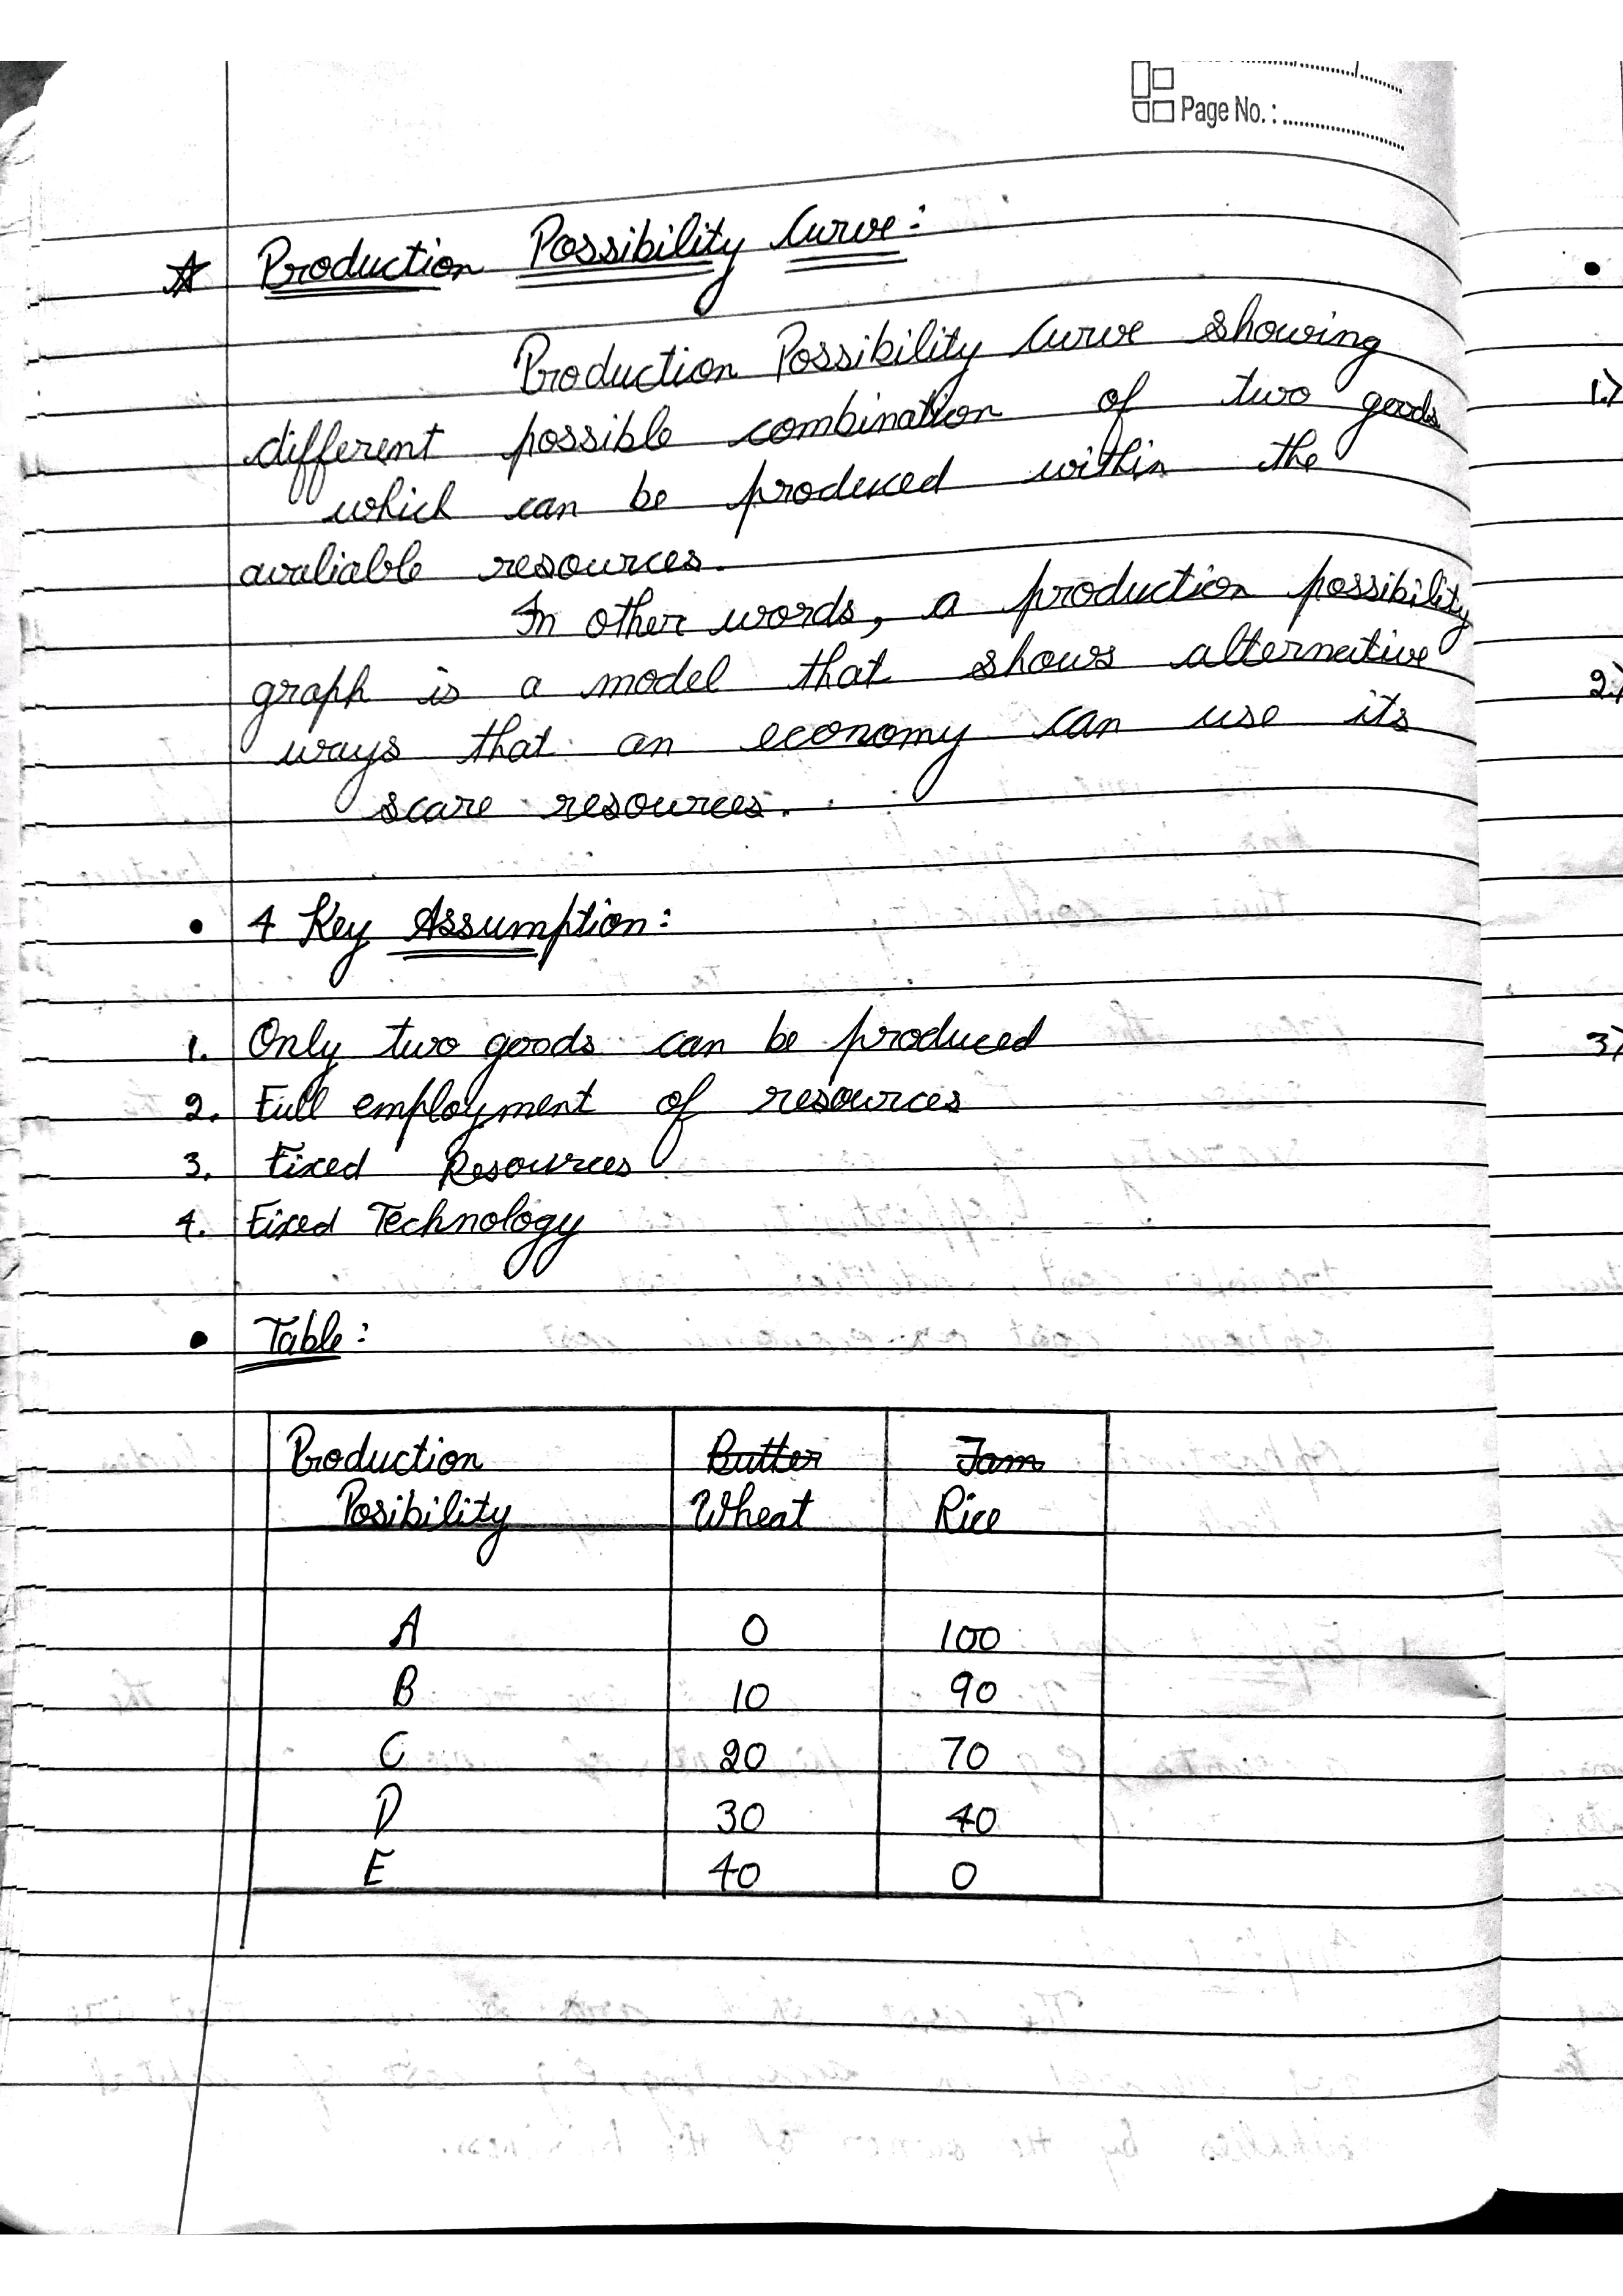 Page No.:
☆ Production Possibility Curve:
Production Possibility Curve showing
different possible combination of two goods
which can be produced within the
avaliable resources.
In other words, a production possibility
graph is a model that shows alternative
ways that an economy can use its
scare resources.
• 4 Key Assumption:
1. Only two goods can be produced
2. Full employment of resources
3. Fixed Resources
4. Fixed Technology
• Table:
Production Butter Jam
Posibility Wheat Rice
A 0 100
B 10 90
C 20 70
D 30 40
E 40 0
•
1.)
2.)
3)